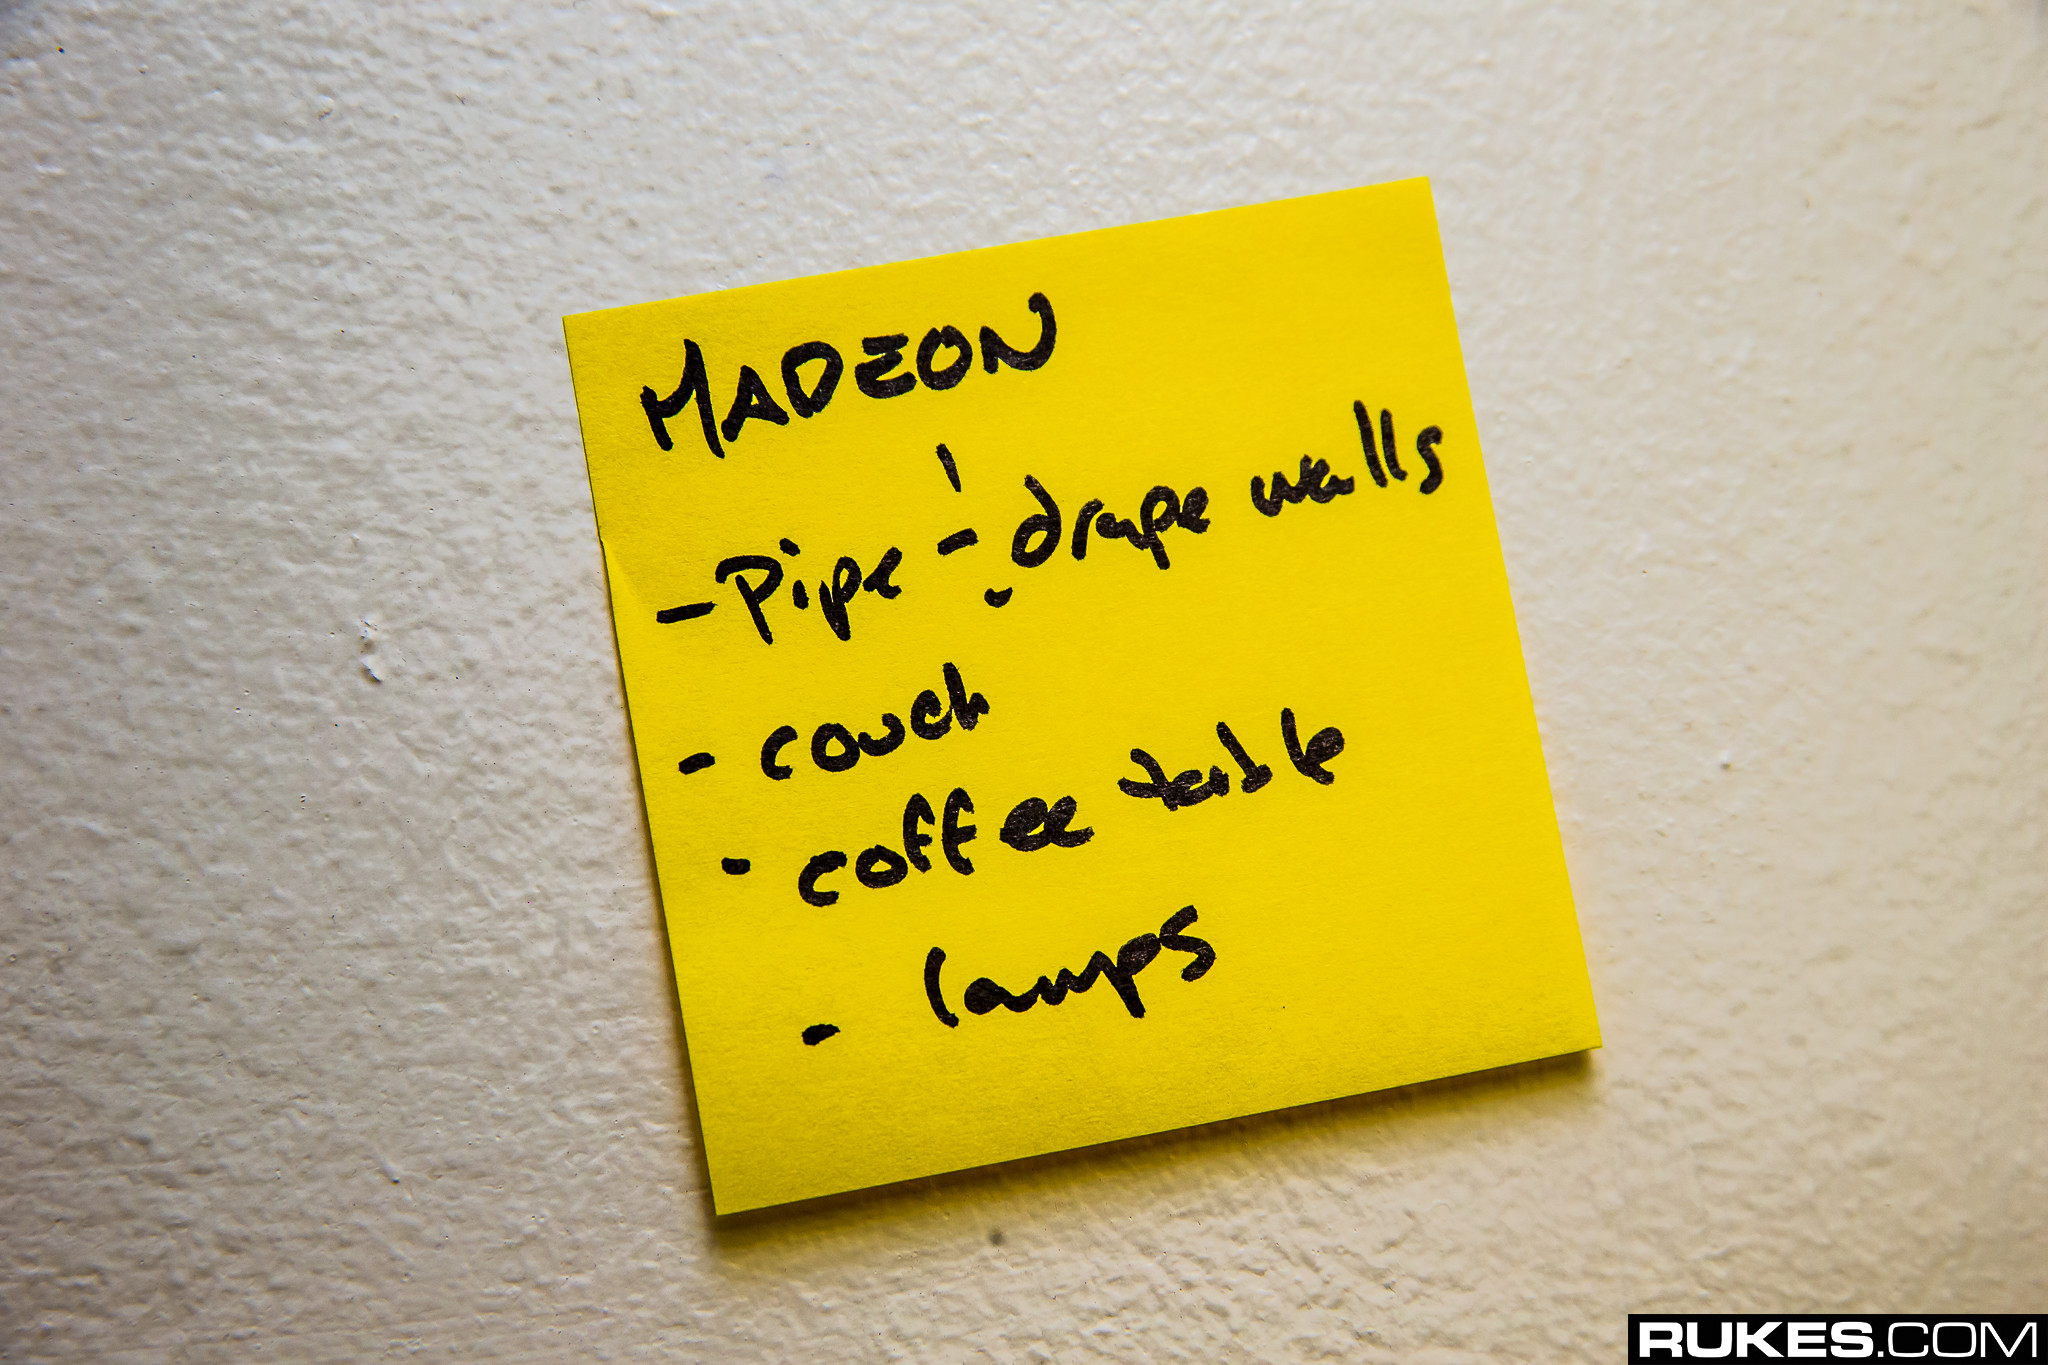 MADEON
- Pipe - drape walls
- couch
- coffee table
- lamps
RUKES.COM